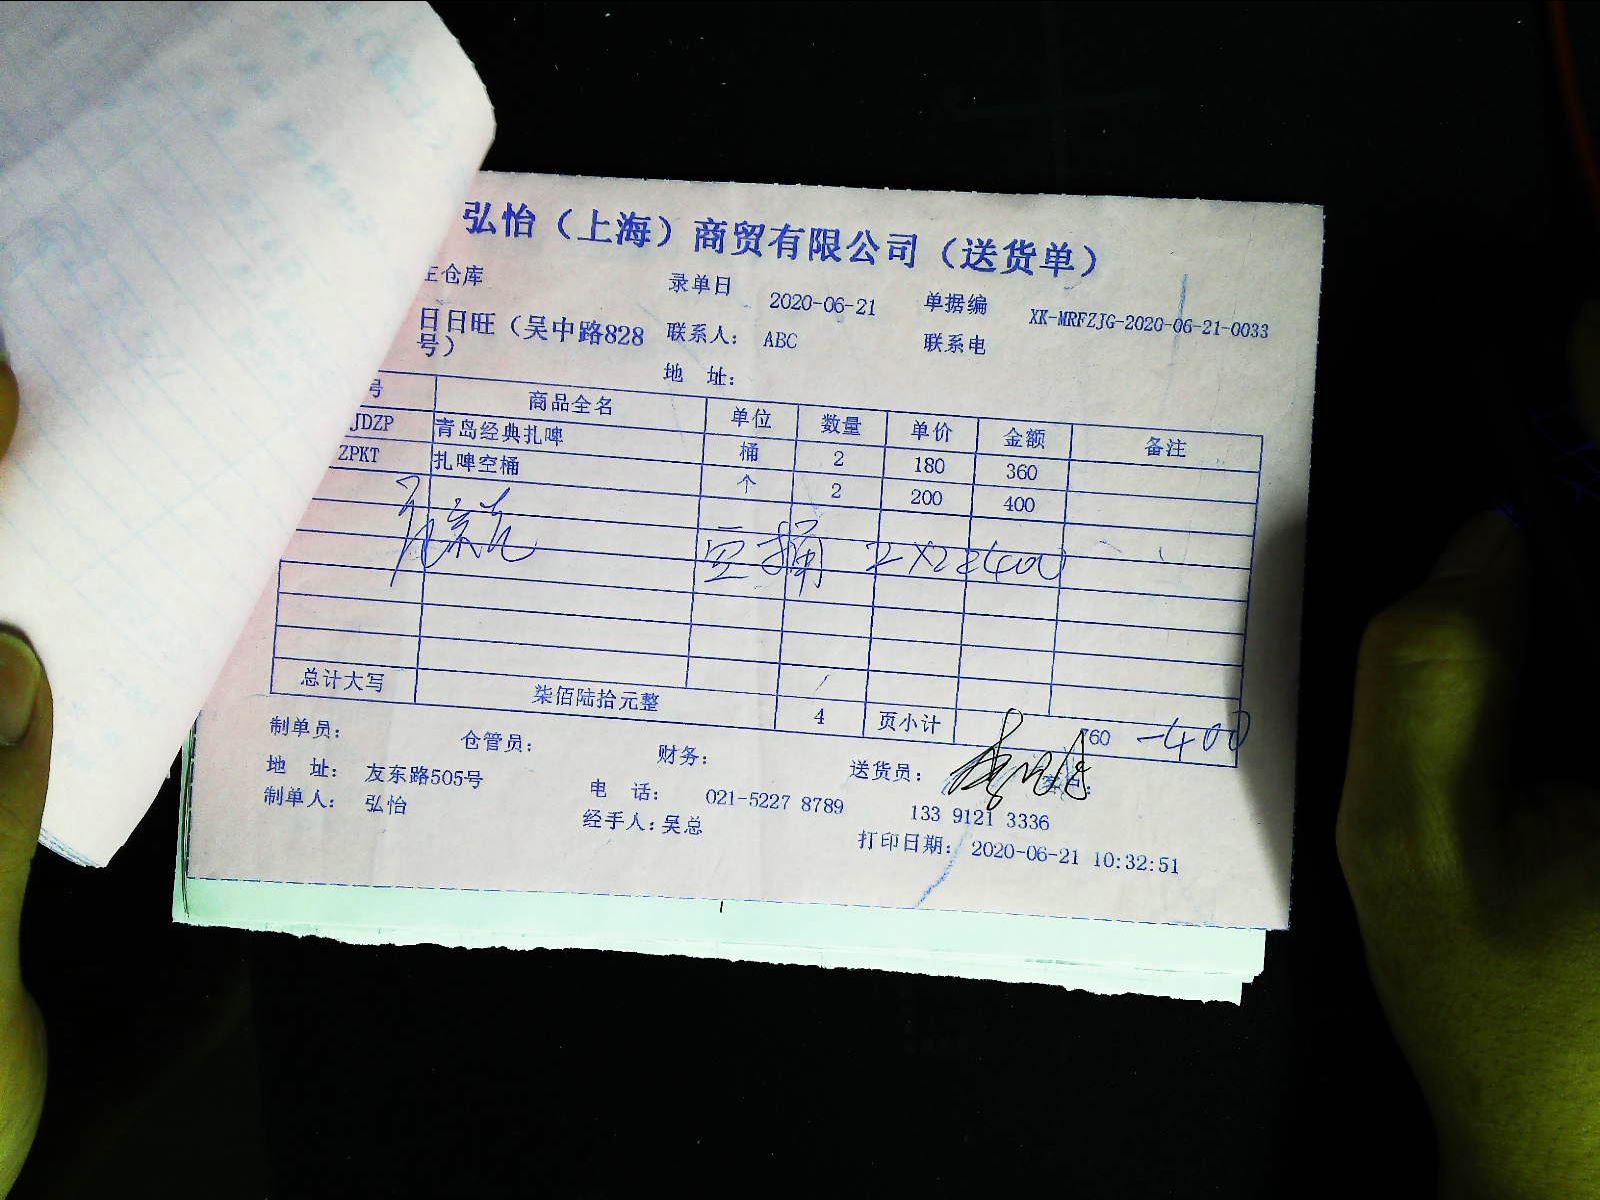 弘怡（上海）商贸有限公司（送货单）
主仓库 录单日 2020-06-21 单据编 XK-MRFZJG-2020-06-21-0033
日日旺（吴中路828号） 联系人： ABC 联系电
地 址：
号 商品全名 单位 数量 单价 金额 备注
JDZP 青岛经典扎啤 桶 2 180 360
ZPKT 扎啤空桶 个 2 200 400
空桶 2X2=400
总计大写 柒佰陆拾元整 4 页小计 760 -400
制单员： 仓管员： 财务： 送货员：
地 址： 友东路505号 电 话： 021-5227 8789 133 9121 3336
制单人： 弘怡 经手人：吴总 打印日期： 2020-06-21 10:32:51